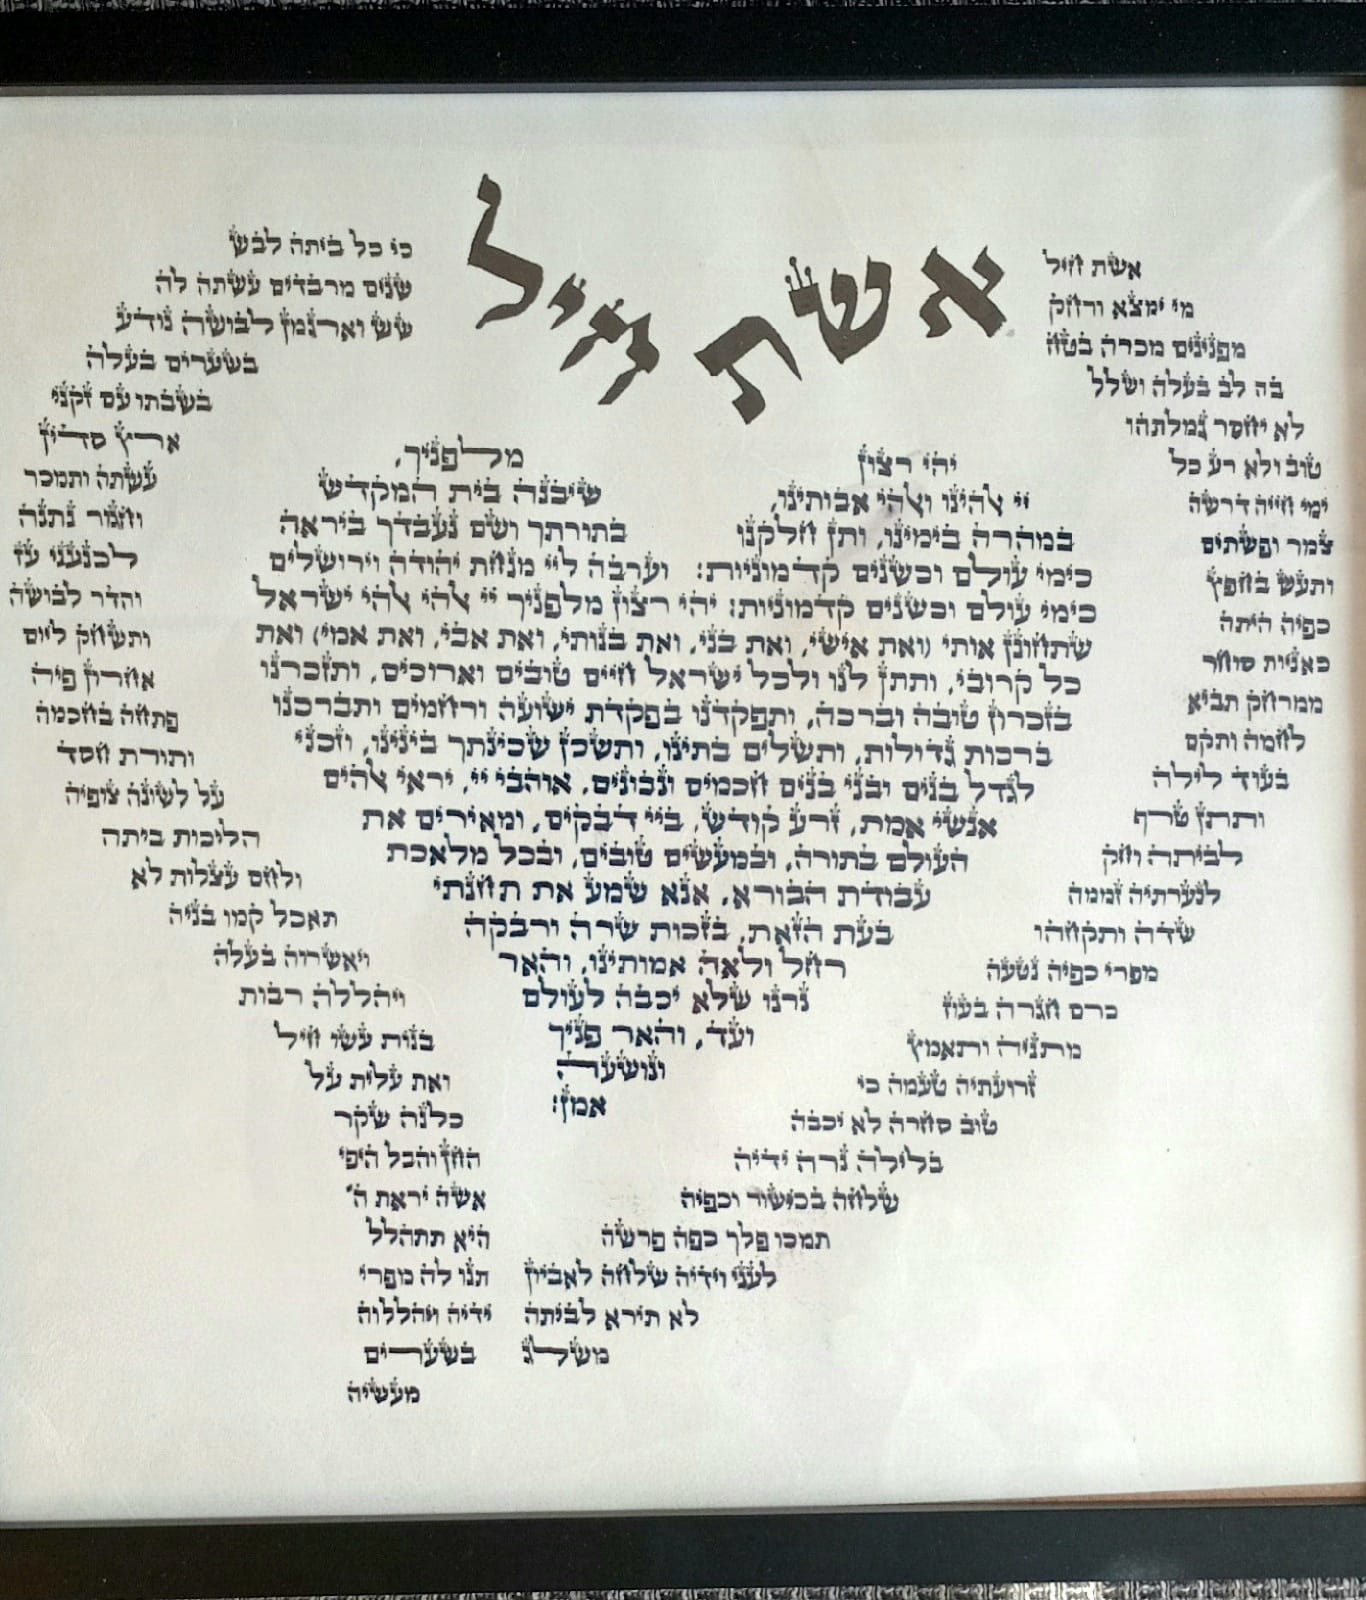 אשת חיל
אשת חיל
מי ימצא ורחק
מפנינים מכרה בטח
בה לב בעלה ושלל
לא יחסר גמלתהו
טוב ולא רע כל
ימי חייה דרשה
צמר ופשתים
ותעש בחפץ
כפיה היתה
כאניות סוחר
ממרחק תביא
לחמה ותקם
בעוד לילה
ותתן טרף
לביתה וחק
לנערתיה זממה
שדה ותקחהו
מפרי כפיה נטעה
כרם חגרה בעוז
מתניה ותאמץ
זרועתיה טעמה כי
טוב סחרה לא יכבה
בלילה נרה ידיה
שלחה בכישור וכפיה
תמכו פלך כפה פרשה
לעני וידיה שלחה לאביון
לא תירא לביתה
משלג
כי כל ביתה לבש
שנים מרבדים עשתה לה
שש וארגמן לבושה נודע
בשערים בעלה
בשבתו עם זקני
ארץ סדין
עשתה ותמכר
וחגר נתנה
לכנעני עז
והדר לבושה
ותשחק ליום
אחרון פיה
פתחה בחכמה
ותורת חסד
על לשונה צופיה
הליכות ביתה
ולחם עצלות לא
תאכל קמו בניה
ויאשרוה בעלה
ויהללה רבות
בנות עשו חיל
ואת עלית על
כלנה שקר
החן והבל היפי
אשה יראת ה'
היא תתהלל
תנו לה מפרי
ידיה ויהללוה
בשערים
מעשיה
יהי רצון מלפניך,
יי אלהינו ואלהי אבותינו, שיבנה בית המקדש
במהרה בימינו, ותן חלקנו בתורתך ושם נעבדך ביראה
כימי עולם וכשנים קדמוניות: וערבה ליי מנחת יהודה וירושלים
כימי עולם וכשנים קדמוניות: יהי רצון מלפניך יי אלהי אלהי ישראל
שתחונן אותי (ואת אישי, ואת בני, ואת בנותי, ואת אבי, ואת אמי) ואת
כל קרובי, ותתן לנו ולכל ישראל חיים טובים וארוכים, ותזכרנו
בזכרון טובה וברכה, ותפקדנו בפקדת ישועה ורחמים ותברכנו
ברכות גדולות, ותשלים בתינו, ותשכן שכינתך בינינו, וזכני
לגדל בנים ובני בנים חכמים ונבונים, אוהבי יי, יראי אלהים
אנשי אמת, זרע קודש, ביי דבקים, ומאירים את
העולם בתורה, ובמעשים טובים, ובכל מלאכת
עבודת הבורא, אנא שמע את תחנתי
בעת הזאת, בזכות שרה ורבקה
רחל ולאה אמותינו, והאר
נרנו שלא יכבה לעולם
ועד, והאר פניך
ונושעה
אמן: